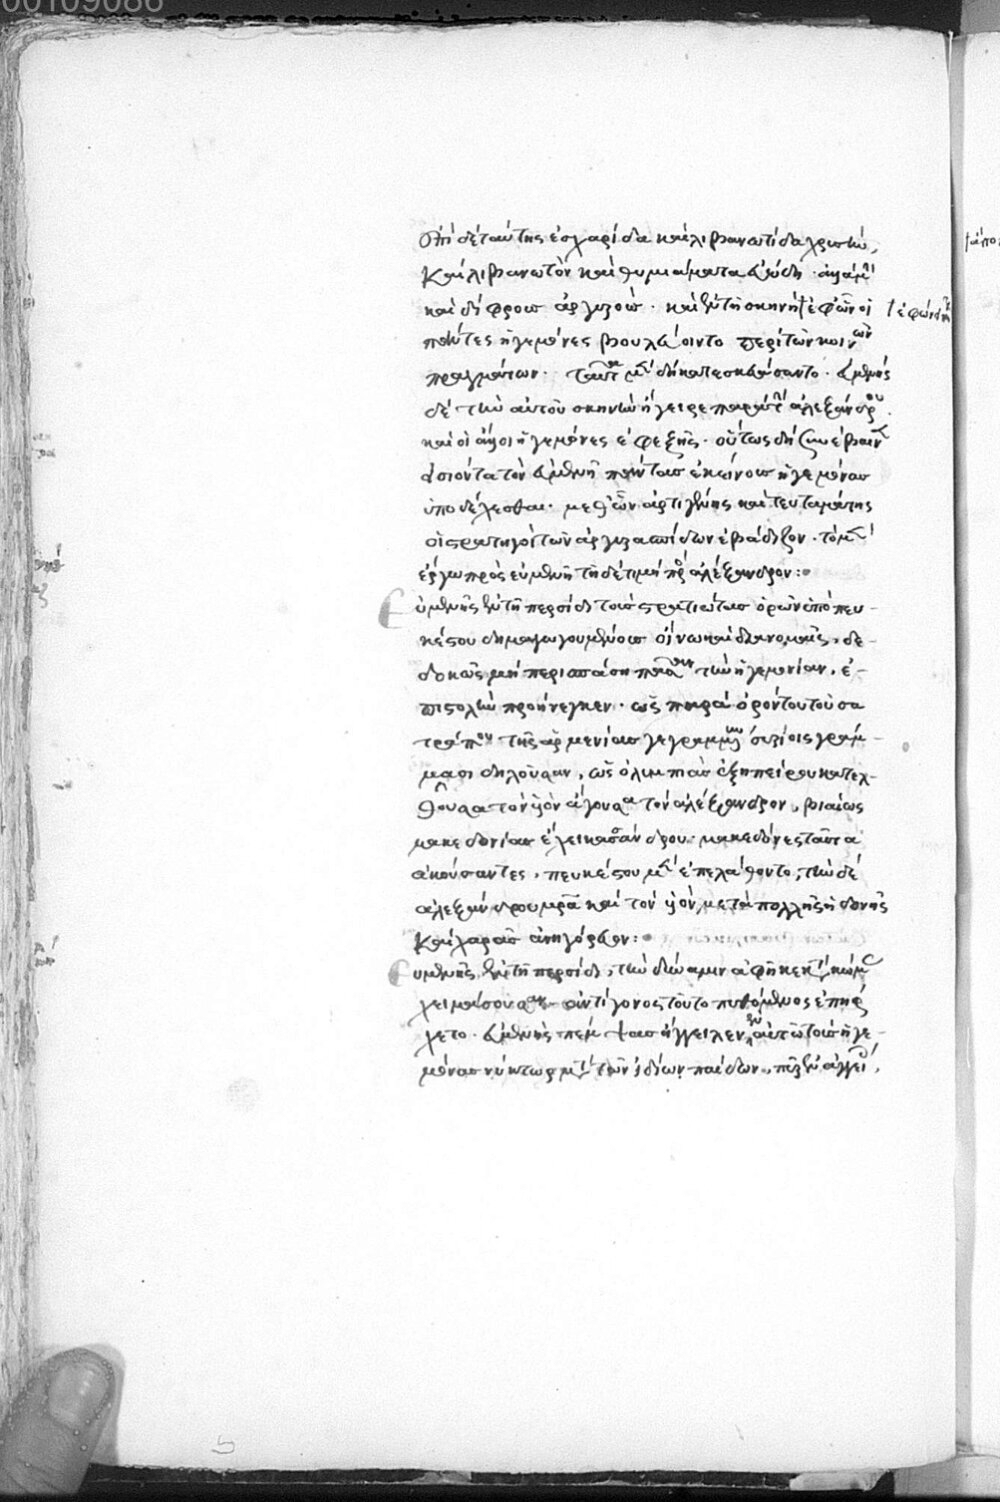 00109086
ἐπὶ δὲ ταύτης ἐσχαρίδα καὶ λιβανωτίδα χρυσῆν,
καὶ λιβανωτὸν καὶ θυμιάματα εὐώδη.
καὶ δίφρους ἀργυροῦς. καὶ ἐν τῇ σκηνῇ ἐφ' ὧν οἱ
ἐφ' ὧν
πάντες ἡγεμόνες βουλεύοιντο περὶ τῶν κοινῶν
πραγμάτων. ταῦτα μὲν δὴ κατεσκευάσαντο. εὐμενὴς
δὲ τὴν αὐτοῦ σκηνὴν ἤγειρε παρὰ τὴν ἀλεξάνδρου.
καὶ οἱ ἄλλοι ἡγεμόνες ἐφεξῆς. οὕτως δὴ συνέβαινεν
εἰσιόντα τὸν εὐμενῆ πάντας ἐκείνους ἡγεμόνας
ὑποδέχεσθαι. μεθ' ὧν ἀρτιγένης καὶ τευταμάτης
οἱ στρατηγοὶ τῶν ἀργυρασπίδων ἐβάδιζον. τὸ μὲν
ἔργῳ πρὸς εὐμενῆ τῇ δὲ τιμῇ πρὸς ἀλέξανδρον:
Εὐμενὴς ἐν τῇ περσίδι τοὺς στρατιώτας ὁρῶν ὑπὸ πευ-
κέστου δημαγωγουμένους οἴνῳ καὶ διανομαῖς, δε-
δοικὼς μὴ περισπάσῃ πᾶσαν τὴν ἡγεμονίαν, ἐ-
πιστολὴν προήνεγκεν. ὡς παρὰ ὀρόντου τοῦ σα
τράπου τῆς ἀρμενίας γεγραμμένην συρίοις γράμ-
μασι δηλοῦσαν, ὡς ὀλυμπιὰς ἐξ ἠπείρου κατελ-
θοῦσα τὸν υἱὸν ἄγουσα τὸν ἀλέξανδρον, βιαίως
μακεδονίας ἔχει κασάνδρου. μακεδόνες ταῦτα
ἀκούσαντες, πευκέστου μὲν ἐπελάθοντο, τὴν δὲ
ἀλεξάνδρου μητέρα καὶ τὸν υἱὸν μετὰ πολλῆς ἡδονῆς
καὶ χαρᾶς ἀνηγόρευον:
Εὐμενὴς ἐν τῇ περσίδι, τὴν δύναμιν ἀφῆκε κατὰ κώμας
χειμάσουσαν. ἀντίγονος τοῦτο πυθόμενος ἐπήρ
χετο. εὐμενὴς πέμψας ἤγγειλεν αὐτῷ τοὺς ἡγε-
μόνας νύκτωρ μετὰ τῶν ἰδίων παίδων, πῦρ ἐν ἀγγείοις